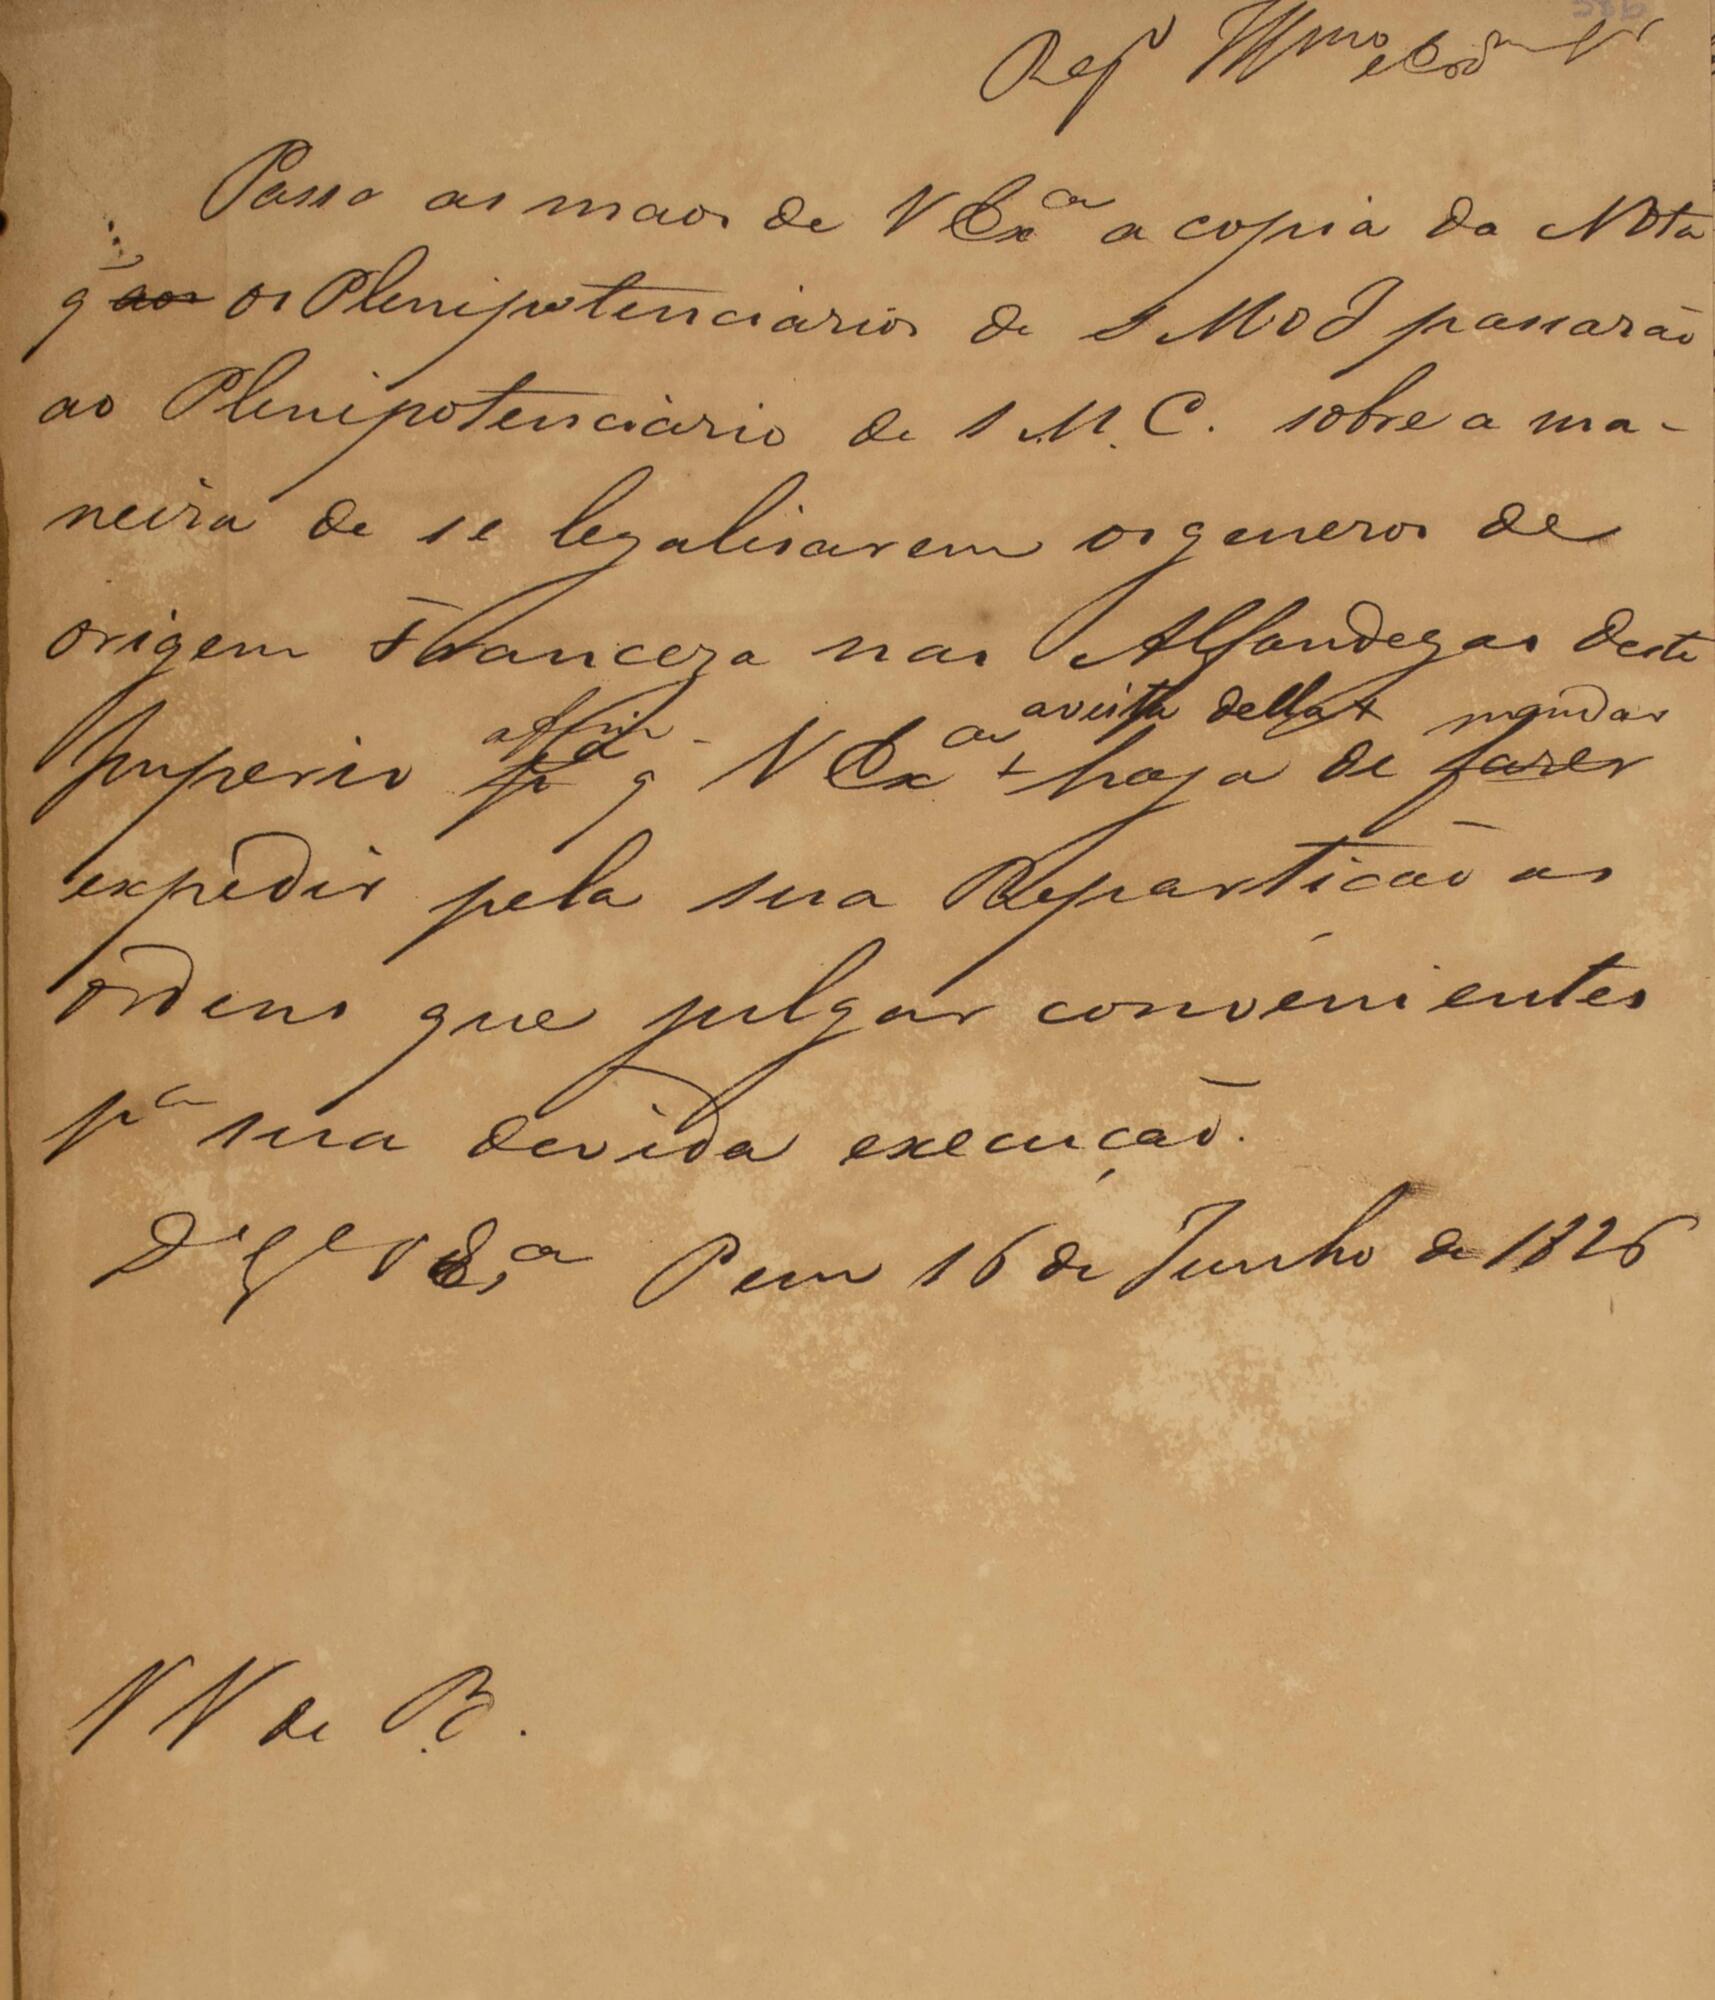 Passo as maos de V Exª a copia da Nota
q ~~aos~~ os Plenipotenciarios de S M O I passarão
ao Plenipotenciario de S M. C. sobre a ma-
neira de se legalisarem os generos de
origem Franceza nas Alfandegas deste
affim avista della + mandar
Imperio ~~pª~~ q V Exª + haja de ~~fazer~~
expedir pela sua Repartição as
ordens que julgar convenientes
pª sua devida execução.
Dˢ Gᵉ V Exª P em 16 de Junho de 1826
V N de B.